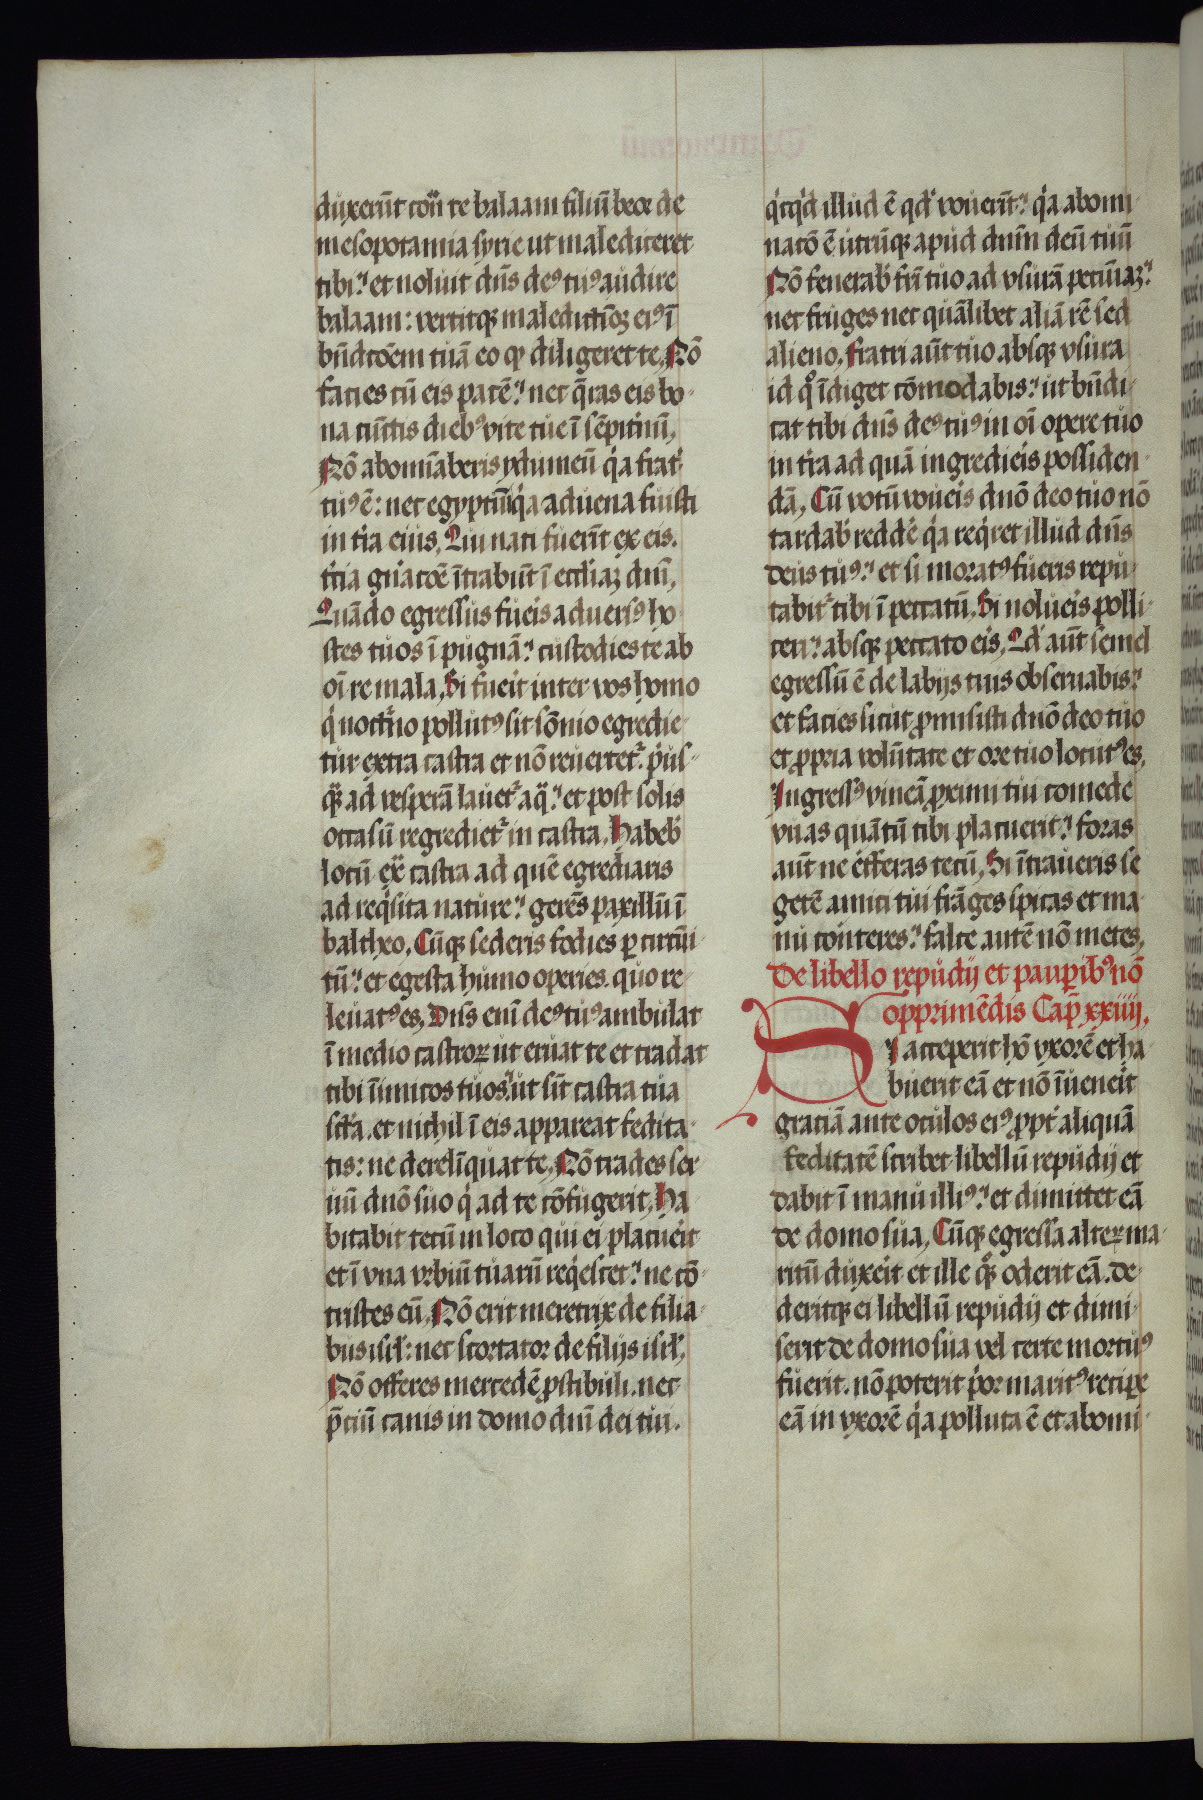 duxerūt cont̄ te balaam filiū beor de
mesopotamia syrie ut malediceret
tibi: et noluit dn̄s deꝰ tuꝰ audire
balaam: vertitqꝫ maledictōeꝫ eiꝰ ī
bn̄dictōem tuā eo qꝙ diligeret te. Nō
facies cū eis pacē: nec q̄ras eis bo-
na cūctis diebꝰ vite tue ī sēpitnū,
Nō abomīaberis ydumeū q̇a frat̉
tuꝰ ē: nec egyptiū q̇a aduena fuisti
in tr̉a eius. Qui nati fuerīt ex eis.
tr̉cia gn̄acōe īrabūt ī eccl̄iaꝫ dn̄i,
Quādo egressus fueis aduersꝰ ho-
stes tuos ī pugnā: custodies te ab
oī re mala. Si fueit inter vos homo
q̇ nocturno pollutꝰ sit sōmio egredie-
tur extra castra et nō reuertet᷑ pus-
qꝫ ad vesperā lauet᷑ aq̄: et post solis
occasū regrediet᷑ in castra. Habeb̉
locū ex̄ castra ad quē egrediaris
ad reqsita nature: gerēs paxillū ī
baltheo. Cūqꝫ sederis fodies ꝑ circui-
tū: et egesta humo operies. quo re-
leuatꝰ es, Dn̄s eni deꝰ tuꝰ ambulat
ī medio castroꝝ ut eruat te et tradat
tibi īimicos tuos: ut sīt castra tua
sc̄a. et nichil ī eis appareat fedita-
tis: ne derelīquat te. Nō trades ser-
uū dn̄o suo q̇ ad te cōfugerit. Ha-
bitabit tecū in loco qui ei placueit
et ī vna vrbiū tuarū reqescet: ne cō-
tristes eū. Nō erit meretrix de filia-
bus isrl̄: nec scortator de filijs isrl̄,
Nō offeres mercedē ꝓstibuli. nec
p̄ciū canis in domo dn̄i dei tui.
q̇cq̇d illud ē qd̉ vouerīt: q̇a abomi-
natō ē utrūqꝫ apud dn̄m deū tuū
Nō fenerab̉ fr̄i tuo ad vsurā pecuniaꝫ:
nec fruges nec quālibet aliā rē sed
alieno. Fratri aut̄ tuo absqꝫ vsura
id qͦ īdiget cōmodabis: ut bn̄di-
cat tibi dn̄s deꝰ tuꝰ in oī opere tuo
in tr̉a ad quā ingredieis possiden-
dā. Cū votū voueis dn̄o deo tuo nō
tardab̉ reddē q̇a reqret illud dn̄s
deus tuꝰ: et si moratꝰ fueris repu-
tabit᷑ tibi ī peccatū. Si nolueis polli-
ceri: absqꝫ peccato eis. Qd̉ aut̄ semel
egressū ē de labijs tuis obseruabis:
et facies sicut ꝓmisisti dn̄o deo tuo
et ꝓpria volūtate et ore tuo locutꝰ es,
Ingressꝰ vineā ꝓximi tui comede
vuas quātū tibi placuerit: foras
aut̄ ne efferas tecū. Si ītraueris se-
getē amici tui frāges spicas et ma-
nu conteres: falce autē nō metes,
De libello repudij et pauꝑibꝰ nō
opprimēdis Cap̄ xxiiij,
SI acceperit hō vxorē et ha-
buerit eā et nō īueneit
gratiā ante oculos eiꝰ ꝓpt̉ aliquā
feditatē scribet libellū repudij et
dabit ī manu illiꝰ: et dimittet eā
de domo sua, Cūqꝫ egressa alterꝝ ma-
ritū duxeit et ille qꝫ oderit eā. de-
deritqꝫ ei libellū repudij et dimi-
serit de domo sua vel certe mortuꝰ
fuerit. nō poterit p̉or maritꝰ reciꝑe
eā in vxorē q̇a polluta ē et abomi-